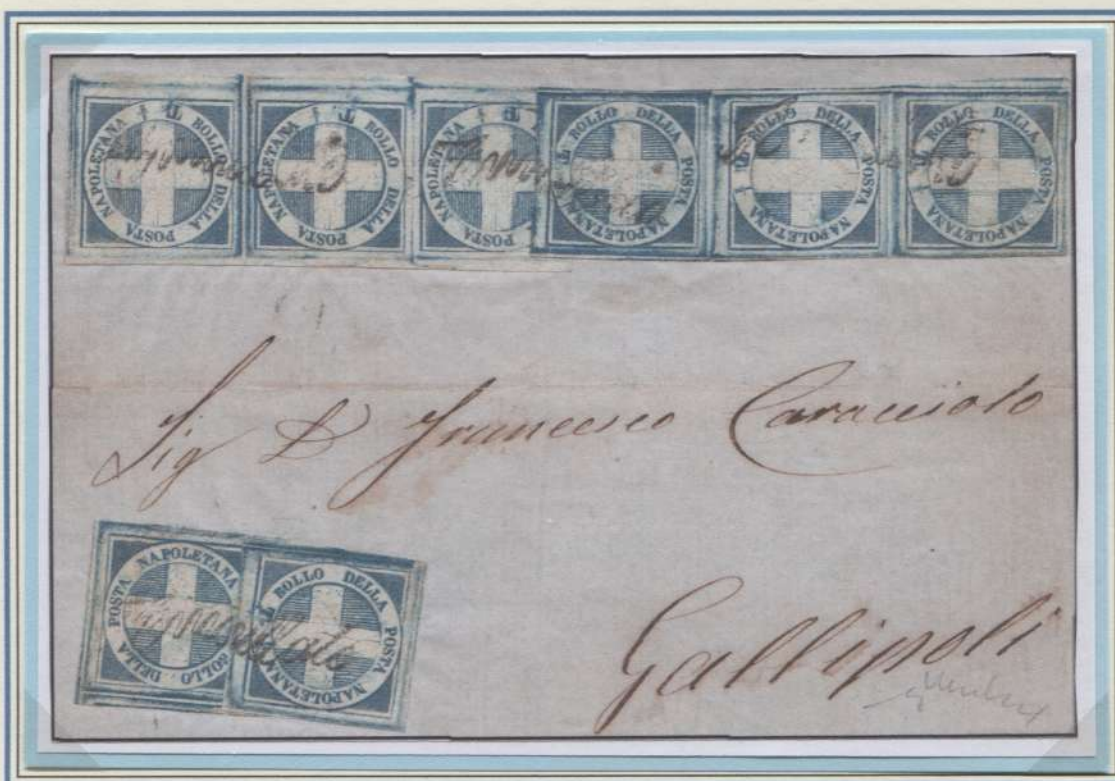 BOLLO DELLA POSTA NAPOLETANA T
BOLLO DELLA POSTA NAPOLETANA T
BOLLO DELLA POSTA NAPOLETANA T
BOLLO DELLA POSTA NAPOLETANA T
BOLLO DELLA POSTA NAPOLETANA T
BOLLO DELLA POSTA NAPOLETANA T
Sig D Francesco Caracciolo
BOLLO DELLA POSTA NAPOLETANA
BOLLO DELLA POSTA NAPOLETANA T
Gallipoli